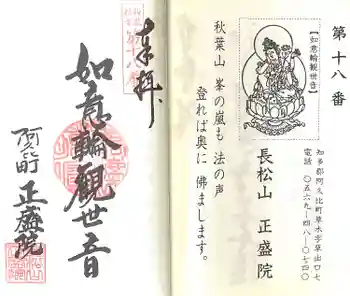 第十八番
【如意輪観世音】
長松山 正盛院
知多郡阿久比町草木字草出口七
電話 〇五六九―四八―〇七四〇
秋葉山 峯の嵐も 法の声
登れば奥に 佛まします。
奉拝
第十八番
如意輪觀世音
阿久比町 正盛院